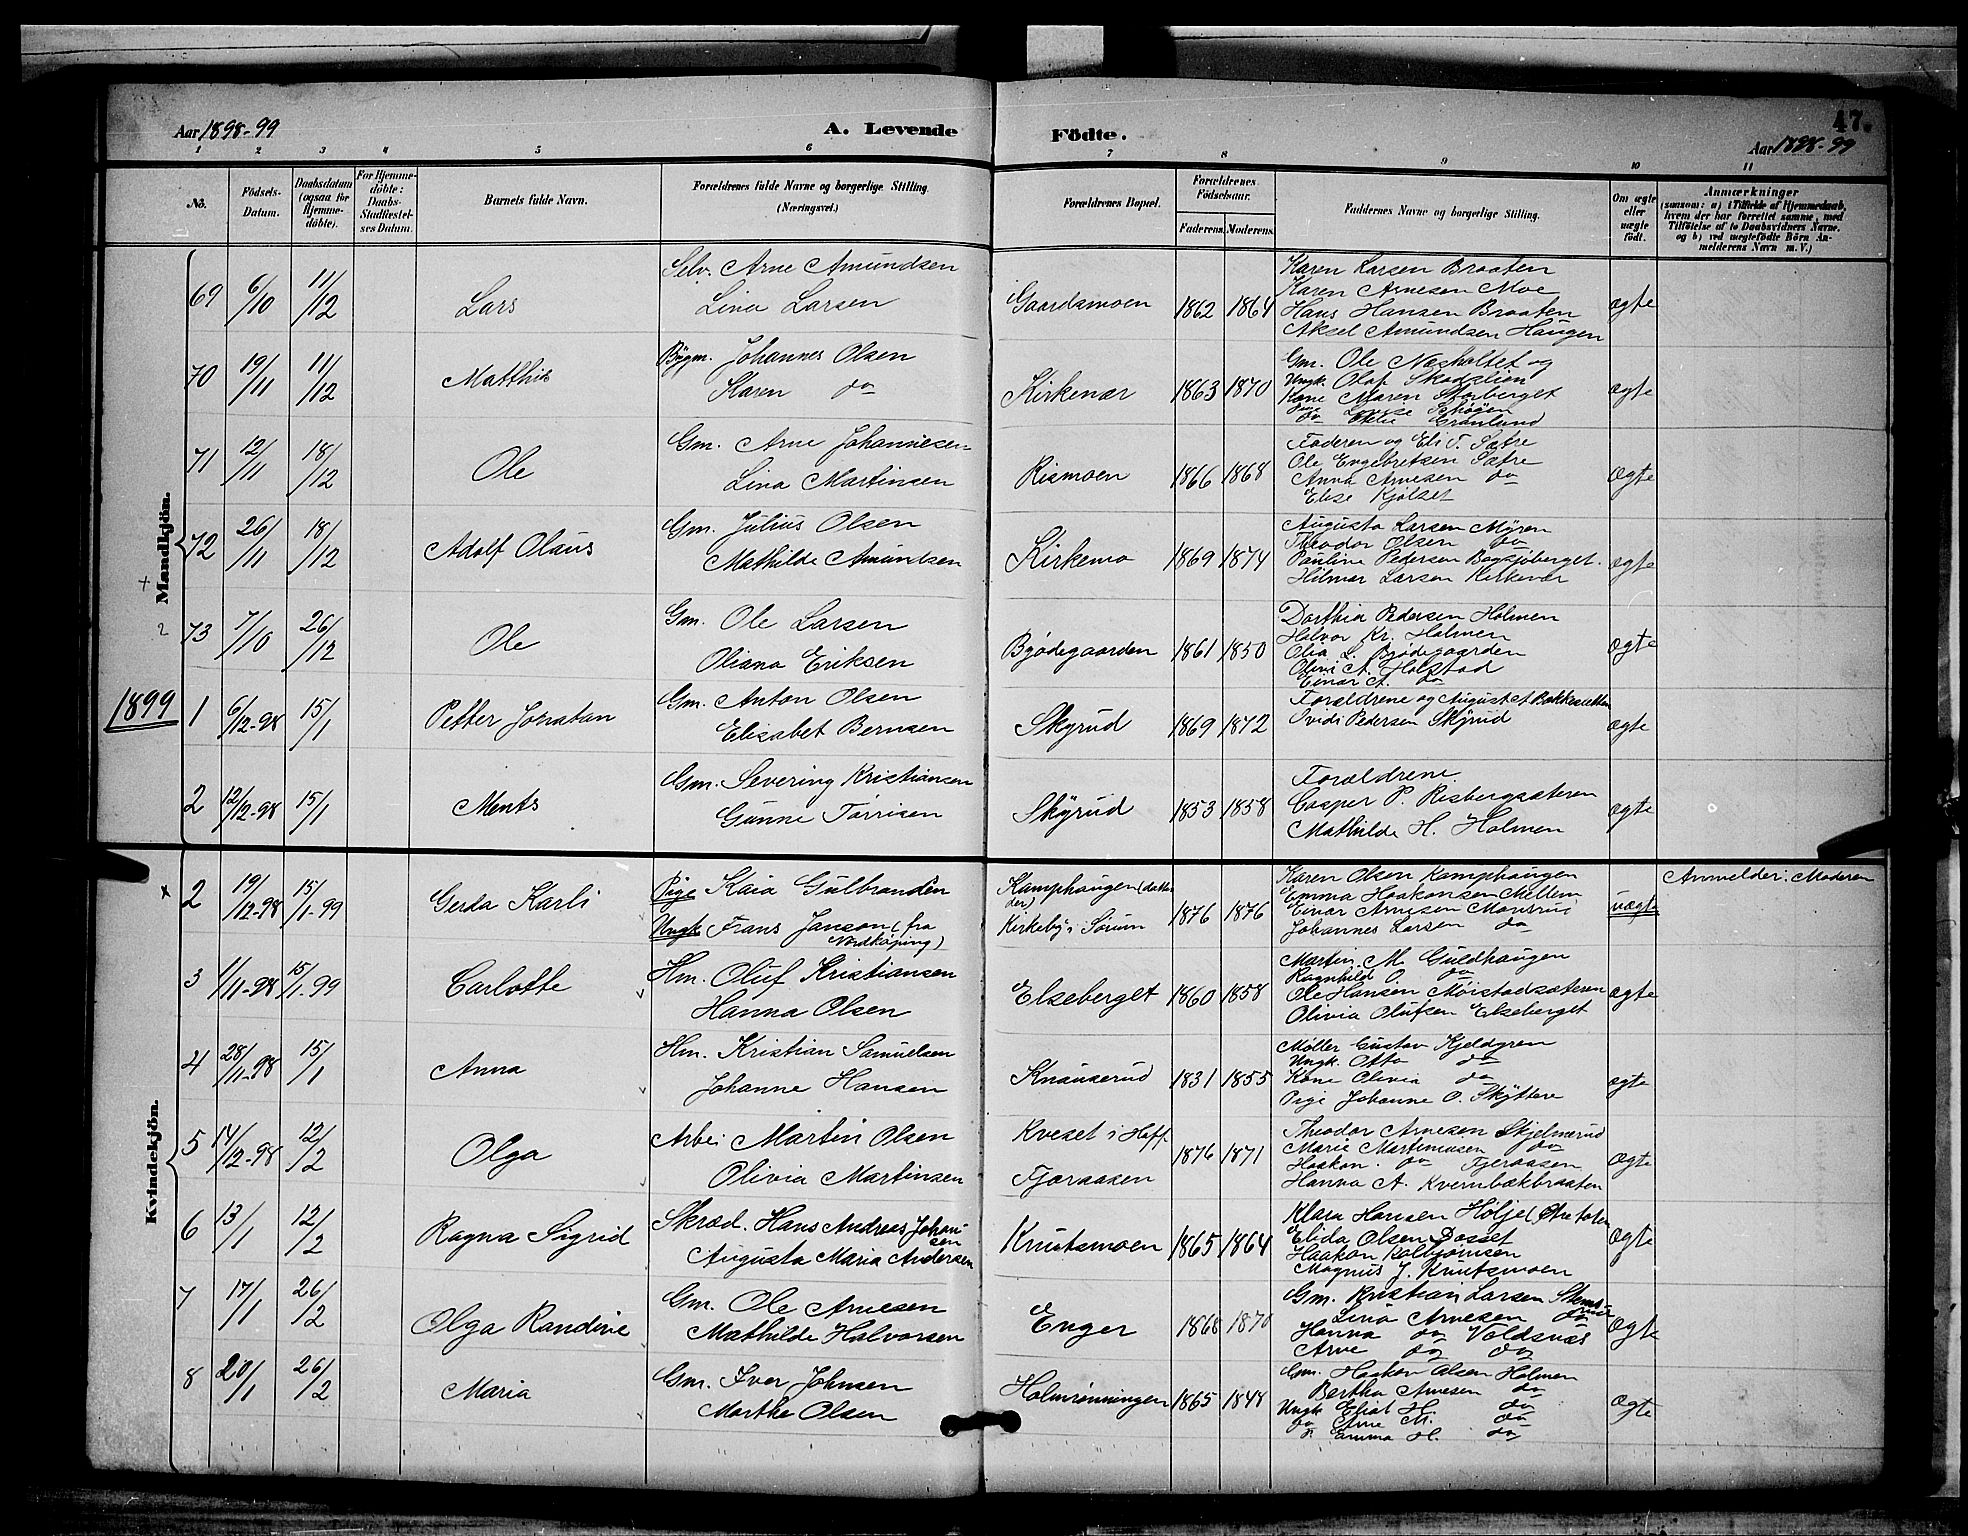 Aar 1898-99
A. Levende
Födte.
47.
Aar 1898-99
1 2 3 4 5 6 7 8 9 10 11
No.
Födsels-
Datum.
Daabsdatum
(ogsaa for
Hjemme-
döbte).
For Hjemme-
döbte:
Daabs-
Stadfæstel-
ses Datum.
Barnets fulde Navn.
Forældrenes fulde Navne og borgerlige Stilling.
(Næringsvei.)
Forældrenes Bopæl.
Forældrenes
Födselsaar.
Faderens. Moderens.
Faddernes Navne og borgerlige Stilling.
Om ægte
eller
uægte
födt.
Anmærkninger
(saasom: a) i Tilfælde af Hjemmedaab,
hvem der har forrettet samme, med
Tilföielse af to Daabsvidners Navne,
og b) ved uægtefödte Börn An-
melderens Navn m. V.)
Mandkjön.
69 6/10 11/12 Lars
Selv. Arne Amundsen
Lina Larsen
Gaardsmoen 1862 1864
Karen Larsen Braaten
Karen Arnesen Moe
Hans Hansen Braaten
Aksel Amundsen Haugen
ægte
70 19/11 11/12 Matthis
Bygm. Johannes Olsen
Karen do
Kirkenær 1863 1870
Gm. Ole Næsholtet og
Ungk. Olaf Skaaslien
Kone Maren Storberget
do Grønlund
ægte
71 12/11 18/12 Ole
Gm. Arne Johannesen
Lina Martinsen
Rismoen 1866 1868
Faderen og Eli T. Sætre
Ole Engebretsen Sætre
Anna Arnesen do
Elise Kjølset
ægte
72 26/11 18/12 Adolf Olaus
Gm. Julius Olsen
Mathilde Amundsen
Kirkemo 1869 1874
Augusta Larsen Myren
Theodor Olsen do
Pauline Pedersen Bagsjöberget.
Hilmar Larsen Kirkenær
ægte
73 7/10 26/12 Ole
Gm. Ole Larsen
Oliana Eriksen
Bjödegaarden 1861 1850
Dorthia Pedersen Holmen
Halvor Kr. Holmen
Olia L. Brödegaarden
Olivi A. Holstad
Einar A. do
ægte
1899
1 6/12-98 15/1 Petter Jonatan
Gm. Anton Olsen
Elisabet Bernsen
Skyrud 1869 1872
Forældrene og August A Bakkesletten
Ovidi Pedersen Skyrud
ægte
2 12/12-98 15/1 Ments
Gm. Severing Kristiansen
Gunne Torrisen
Skyrud 1853 1858
Forældrene
Casper P. Risbergsæteren
Mathilde H. Holmen
ægte
Kvindekjön.
2 19/12-98 15/1-99 Gerda Karli
Pige Kaia Gulbrandsen
Ungk. Frans Janson (fra
Nordköping)
Kamphaugen
Kirkeby i Sørum 1876 1876
Karen Olsen Kamphaugen
Emma Haakonsen Mellem
Einar Arnesen Monsrud
Johannes Larsen do
uægte
Anmelder: Moderen
3 1/11-98 15/1-99 Carlotte
Hm. Oluf Kristiansen
Hanna Olsen
Elseberget 1860 1858
Martin M. Guldhaugen
Ragnhild O. do
Ole Hansen Moistadsæteren
Olivia Olufsen Elseberget
ægte
4 28/11-98 15/1 Anna
Hm. Kristian Samuelsen
Johanne Hansen
Knauserud 1831 1855
Møller Gustav Kjeldgren
Ungk. Otto do
Kone Olivia do
Pige Johanne O. Skyttere
ægte
5 14/12-98 12/2 Olga
Arbei Martin Olsen
Olivia Martinsen
Kveset i Hoff
Fjæraasen 1876 1871
Theodor Arnesen Skjelmerud
Marie Martinusen do
Haakon do Fjeraasen
Hanna A. Kvernbækbraaten
ægte
6 13/1 12/2 Ragna Sigrid
Skræd. Hans Andreas Johan-
sen
Augusta Maria Andersen
Knutsmoen 1865 1864
Klara Hansen Hölje Östre toten
Elida Olsen Dosset
Haakon Kolbjørnsen
Magnus J. Knutsmoen
ægte
7 17/1 26/2 Olga Randine
Gm. Ole Arnesen
Mathilde Halvorsen
Enger 1868 1870
Gm. Kristian Larsen
Lina Arnesen do
Hanna do Voldsnæs
Arne do do
ægte
8 20/1 26/2 Maria
Gm. Iver Johnsen
Marthe Olsen
Holmrönningen 1865 1848
Gm. Haakon Olsen Holmen
Bertha Arnesen do
Ungk. Eliot H. do
do Arne M. do
P. Emma H. do
ægte